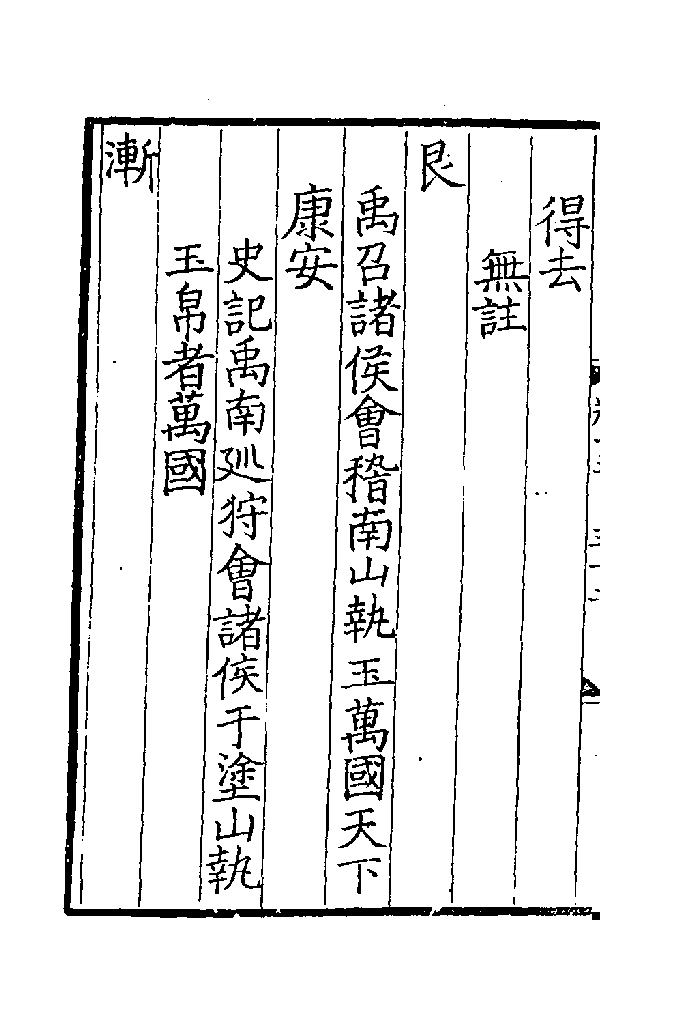 得去
無註
艮
禹召諸侯會稽南山執玉萬國天下
康安
史記禹南廵狩會諸侯于塗山執
玉帛者萬國
漸